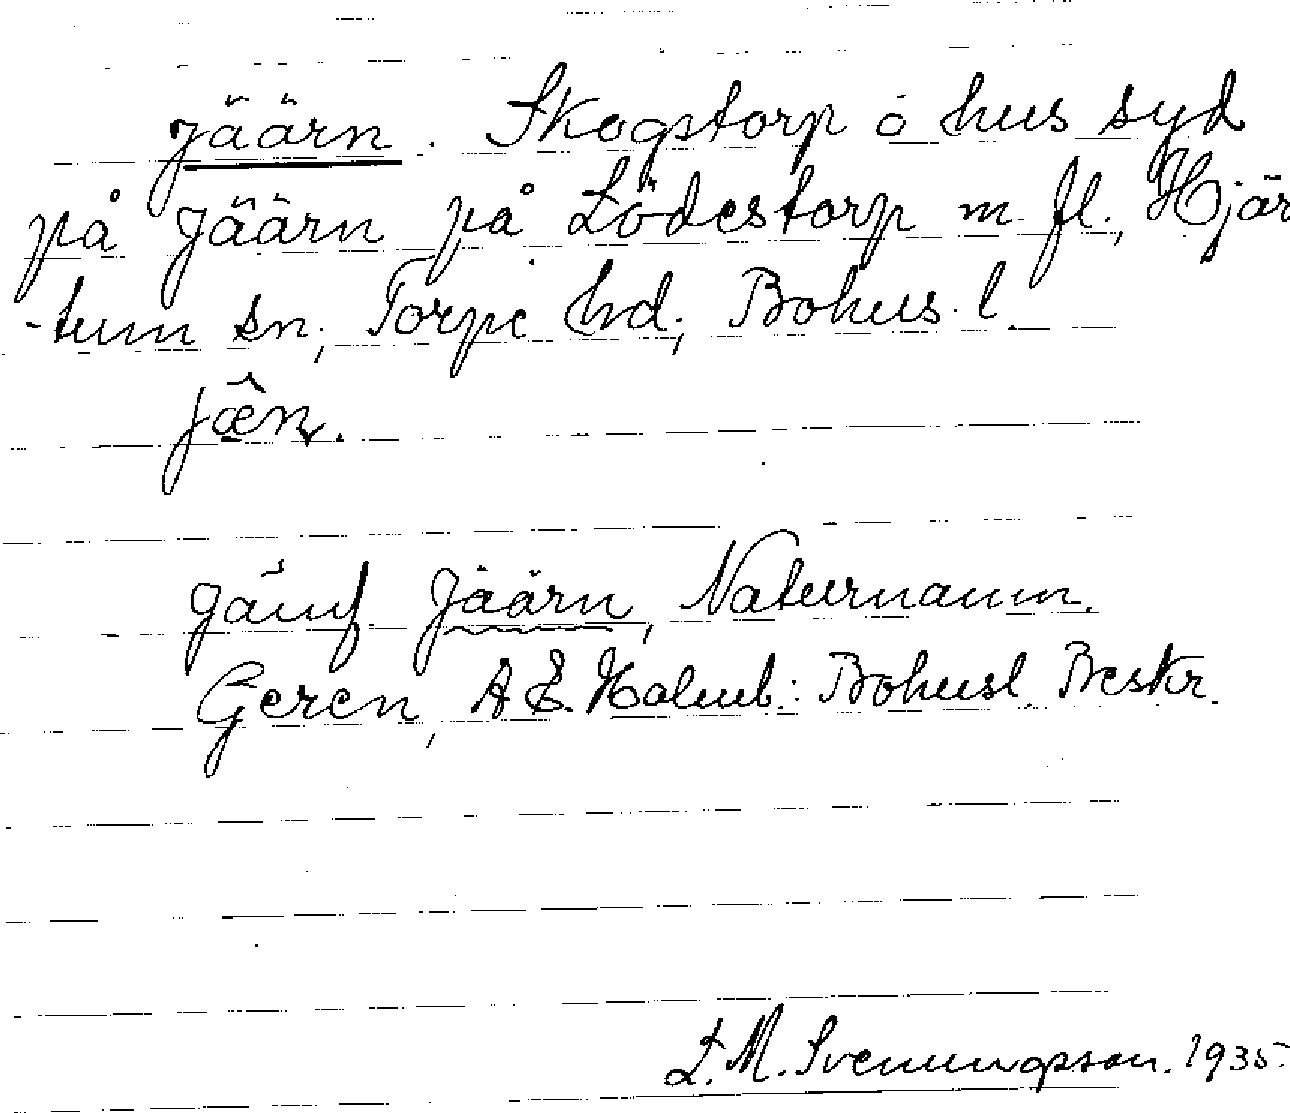 jäärn. Skogstorp o hus syd
på Jäärn på Lödestorp m. fl., Hjär
-tum sn, Torpe hd, Bohus. l.
jæ̂n.
jämf Jäärn, Naturnamn.
Geren, A E. Holmb.: Bohusl. Beskr.
L. M. Svenungsson. 1935.